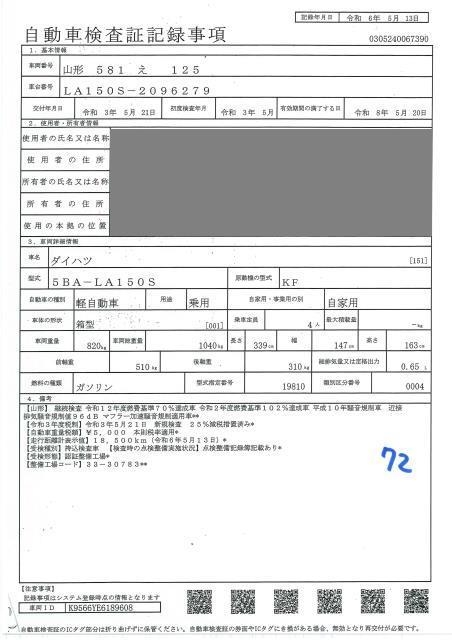 記録年月日 令和 6年 5月 13日
自動車検査証記録事項
0305240067390
1．基本情報
車両番号 山形 581 え 125
車台番号 LA150S-2096279
交付年月日 令和 3年 5月 21日 初度検査年月 令和 3年 5月 有効期間の満了する日 令和 8年 5月 20日
2．使用者・所有者情報
使用者の氏名又は名称
使用者の住所
所有者の氏名又は名称
所有者の住所
使用の本拠の位置
3．車両詳細情報
車名 ダイハツ [151]
型式 5BA-LA150S 原動機の型式 KF
自動車の種別 軽自動車 用途 乗用 自家用・事業用の別 自家用
車体の形状 箱型 [001] 乗車定員 4人 最大積載量 -kg
車両重量 820kg 車両総重量 1040kg 長さ 339cm 幅 147cm 高さ 163cm
前軸重 510kg 後軸重 310kg 総排気量又は定格出力 0.65 L
燃料の種類 ガソリン 型式指定番号 19810 類別区分番号 0004
4．備考
【山形】 継続検査 令和12年度燃費基準70%達成車 令和2年度燃費基準102%達成車 平成10年騒音規制車 近接
排気騒音規制値96dB マフラー加速騒音規制適用車**
【令和3年度税制】令和3年5月21日 新規検査 25%減税措置済み*
【自動車重量税額】¥5,000 本則税率適用*
【走行距離計表示値】18,500km（令和6年5月13日）*
【受検種別】持込検査車 【検査時の点検整備実施状況】点検整備記録簿記載あり*
【受検形態】認証整備工場*
【整備工場コード】33-30783**
72
【注意事項】
記録事項はシステム登録時点の情報となります
車両ID K9566YE6189608
自動車検査証のICタグ部分は折り曲げずに保管ください。自動車検査証の券面やICタグに き損がある場合、無効となり再交付が必要です。